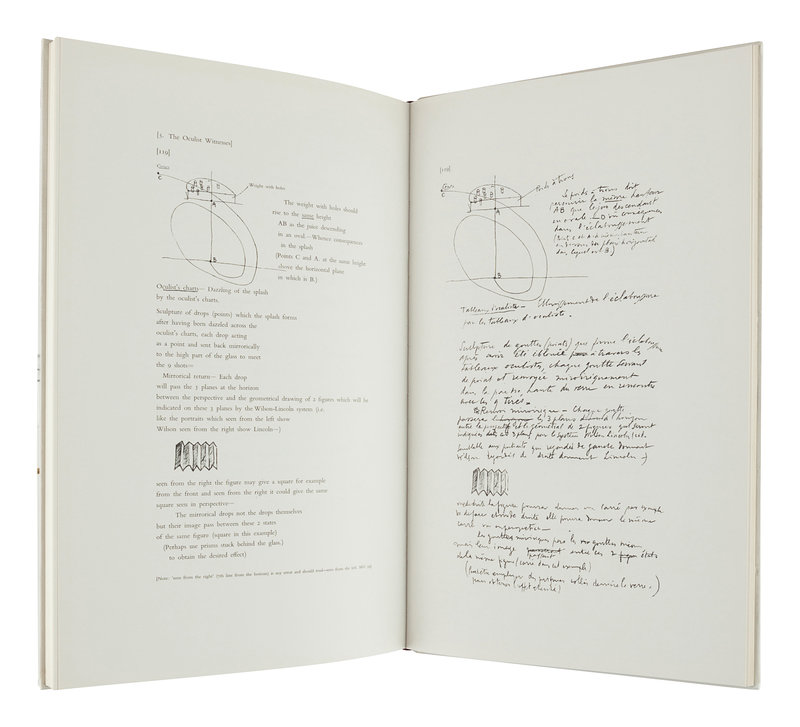 [5. The Oculist Witnesses]
[129]
Grace
C
Weight with holes
A
B
The weight with holes should
rise to the same height
AB as the pace descending
in an oval.—Whence consequences
in the splash
(Points C and A. at the same height
above the horizontal plane
in which is B.)
Oculist's charts— Dazzling of the splash
by the oculist's charts.
Sculpture of drops (points) which the splash forms
after having been dazzled across the
oculist's charts, each drop acting
as a point and sent back mirrorically
to the high part of the glass to meet
the 9 shots=
Mirrorical return— Each drop
will pass the 3 planes at the horizon
between the perspective and the geometrical drawing of 2 figures which will be
indicated on these 3 planes by the Wilson-Lincoln system (i.e.
like the portraits which seen from the left show
Wilson seen from the right show Lincoln—)
seen from the right the figure may give a square for example
from the front and seen from the right it could give the same
square seen in perspective—
The mirrorical drops not the drops themselves
but their image pass between these 2 states
of the same figure (square in this example)
(Perhaps use prisms stuck behind the glass.)
to obtain the desired effect)
[Note: 'seen from the right' (7th line from the bottom) is an error and should read—seen from the left.
[129]
C
Poids à trous
A
B
Le poids à trous doit
parcourir la même hauteur
AB que le
en ovale
dans l'éclaboussement
dans lequel est B.)
Tableaux oculistes — Éblouissement de l'éclaboussure
par les tableaux d'oculiste.
Sculpture de gouttes (points) que forme l'éclaboussure
après avoir été éblouie à travers les
tableaux oculistes, chaque goutte servant
de point et renvoyée miroiriquement
dans la partie haute du verre en rencontre
avec les 9 tirés =
Renvoi miroirique — Chaque goutte
passera les 3 plans à l'horizon
entre le perspectif et le géométral de 2 figures qui seront
indiquées sur ces 3 plans par le système Wilson-Lincoln (c.a.d.
semblable aux portraits qui regardés de gauche donnent
Wilson regardés de droite donnent Lincoln —)
la figure pourra donner un carré par exemple
de face et vue de droite elle pourra donner le même
carré vu en perspective —
Les gouttes miroiriques pas les gouttes même
mais leur image entre ces 2 états
de la même figure (carré dans cet exemple)
(Peut être employer des prismes collés derrière le verre.)
pour obtenir l'effet désiré)